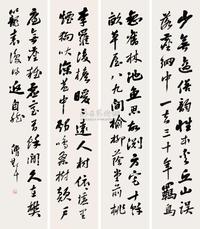 少無適俗韻性本愛丘山誤
落塵網中一去三十年羈鳥
舊林池魚思故淵方宅十餘
畝草屋八九間榆柳蔭堂前桃
李羅後檐曖遠人村依依墟里
煙狗吠深巷中鷄鳴桑樹顛戶
庭無塵雜虛室有餘閒久在樊
籠裏復得返自然